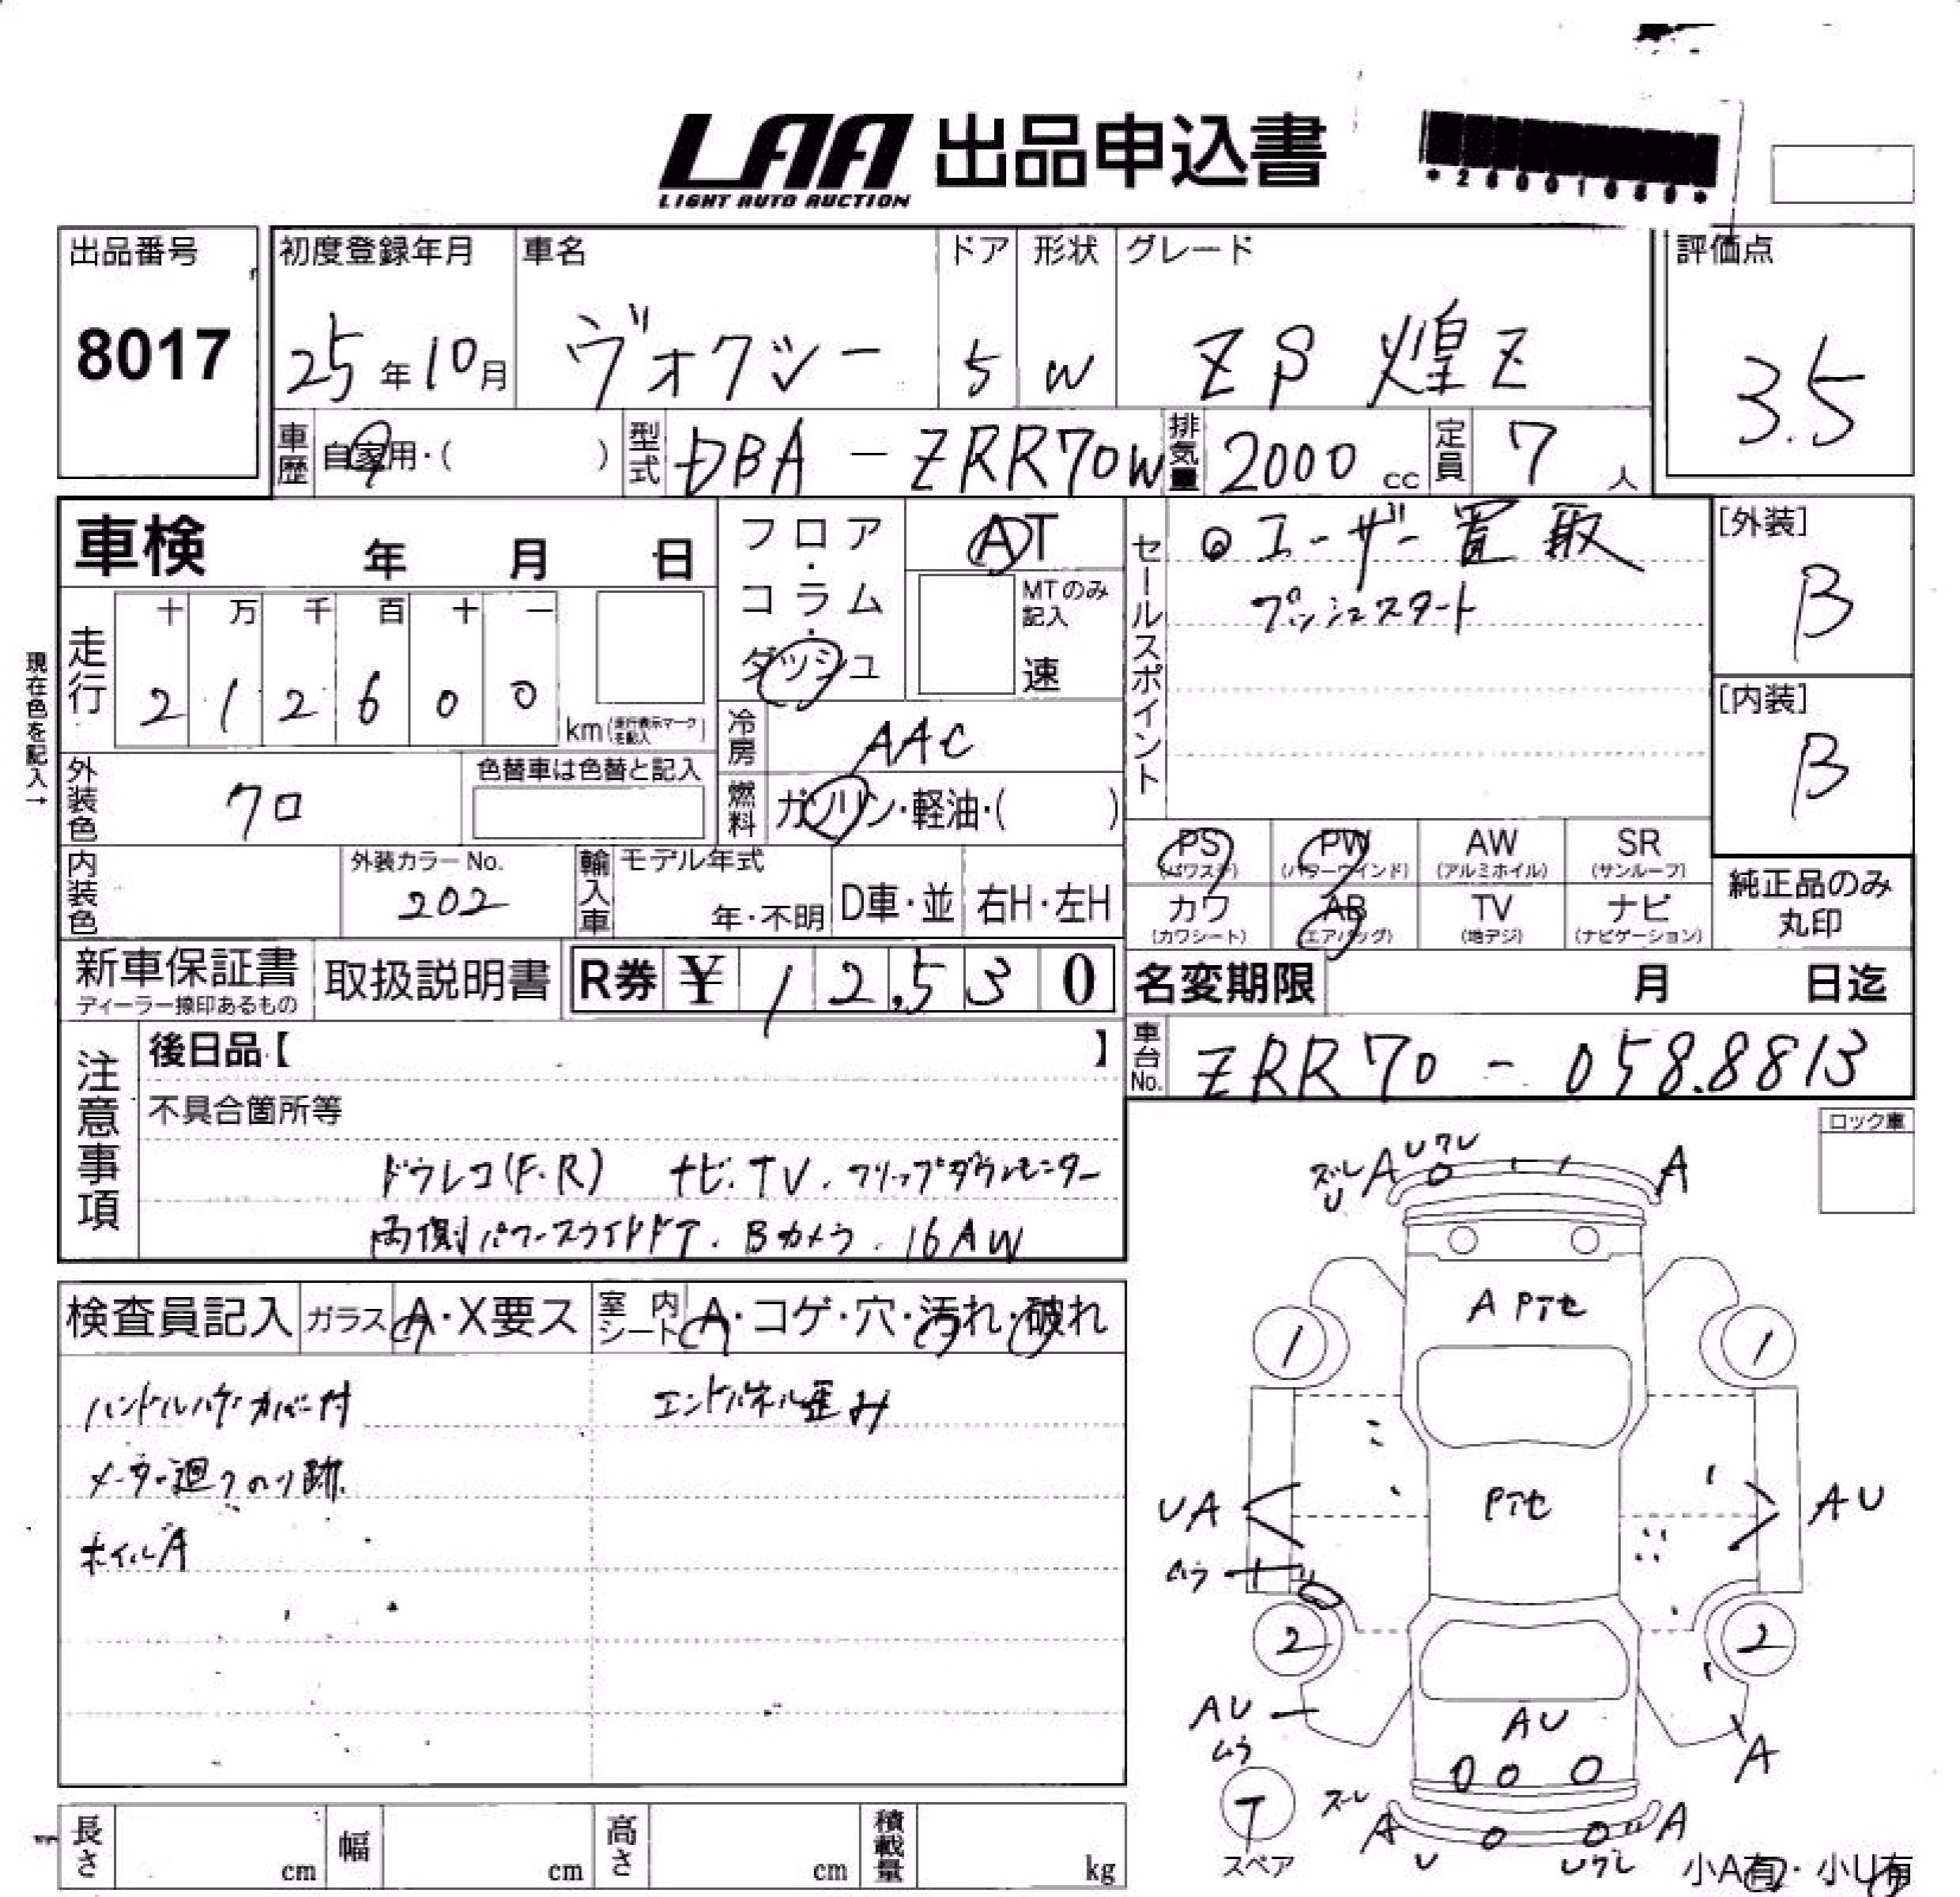 LAA 出品申込書
LIGHT AUTO AUCTION
出品番号
8017
初度登録年月
25年10月
車名
ヴォクシー
ドア
5
形状
W
グレード
ZS 煌Z
評価点
3.5
車歴
自家用・( )
型式
DBA - ZRR70W
排気量
2000 cc
定員
7 人
車検 年 月 日
フロア・コラム・ダッシュ
AT
MTのみ記入
速
セールスポイント
◎ユーザー買取
プッシュスタート
[外装]
B
[内装]
B
現在色を記入→
走行
十 万 千 百 十 一
2 1 2 6 0 0
km(走行表示マークを記入)
冷房
AAC
外装色
クロ
色替車は色替と記入
燃料
ガソリン・軽油・( )
内装色
外装カラーNo.
202
輸入車
モデル年式
年・不明
D車・並
右H・左H
PS
(パワステ)
PW
(パワーウインド)
AW
(アルミホイル)
SR
(サンルーフ)
カワ
(カワシート)
AB
(エアバッグ)
TV
(地デジ)
ナビ
(ナビゲーション)
純正品のみ
丸印
新車保証書
ディーラー捺印あるもの
取扱説明書
R券 ¥ 12,530
名変期限 月 日迄
車台No.
ZRR70 - 0588813
注意事項
後日品【 】
不具合箇所等
ドラレコ(F.R) ナビ.TV.フリップダウンモニター
両側パワースライドドア.Bカメラ.16AW
ロック車
検査員記入
ガラス
A・X要ス
室内シート
A・コゲ・穴・汚れ・破れ
ハンドルハゲ カバー付
エンドパネル歪み
メーター廻りのり跡
ホイルA
ズレ
U
A
Uワレ
A
Aアセ
1
1
UA
アセ
AU
ムラ
2
2
AU
ムラ
AU
A
T
スペア
ズレ
A
U
A
小A有・小U有
長さ cm
幅 cm
高さ cm
積載量 kg